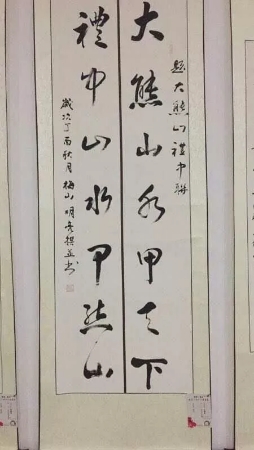 題大熊山禮中聯
大熊山水甲天下
禮中山水甲熊山
歲次丁酉秋月梅山明撰並書